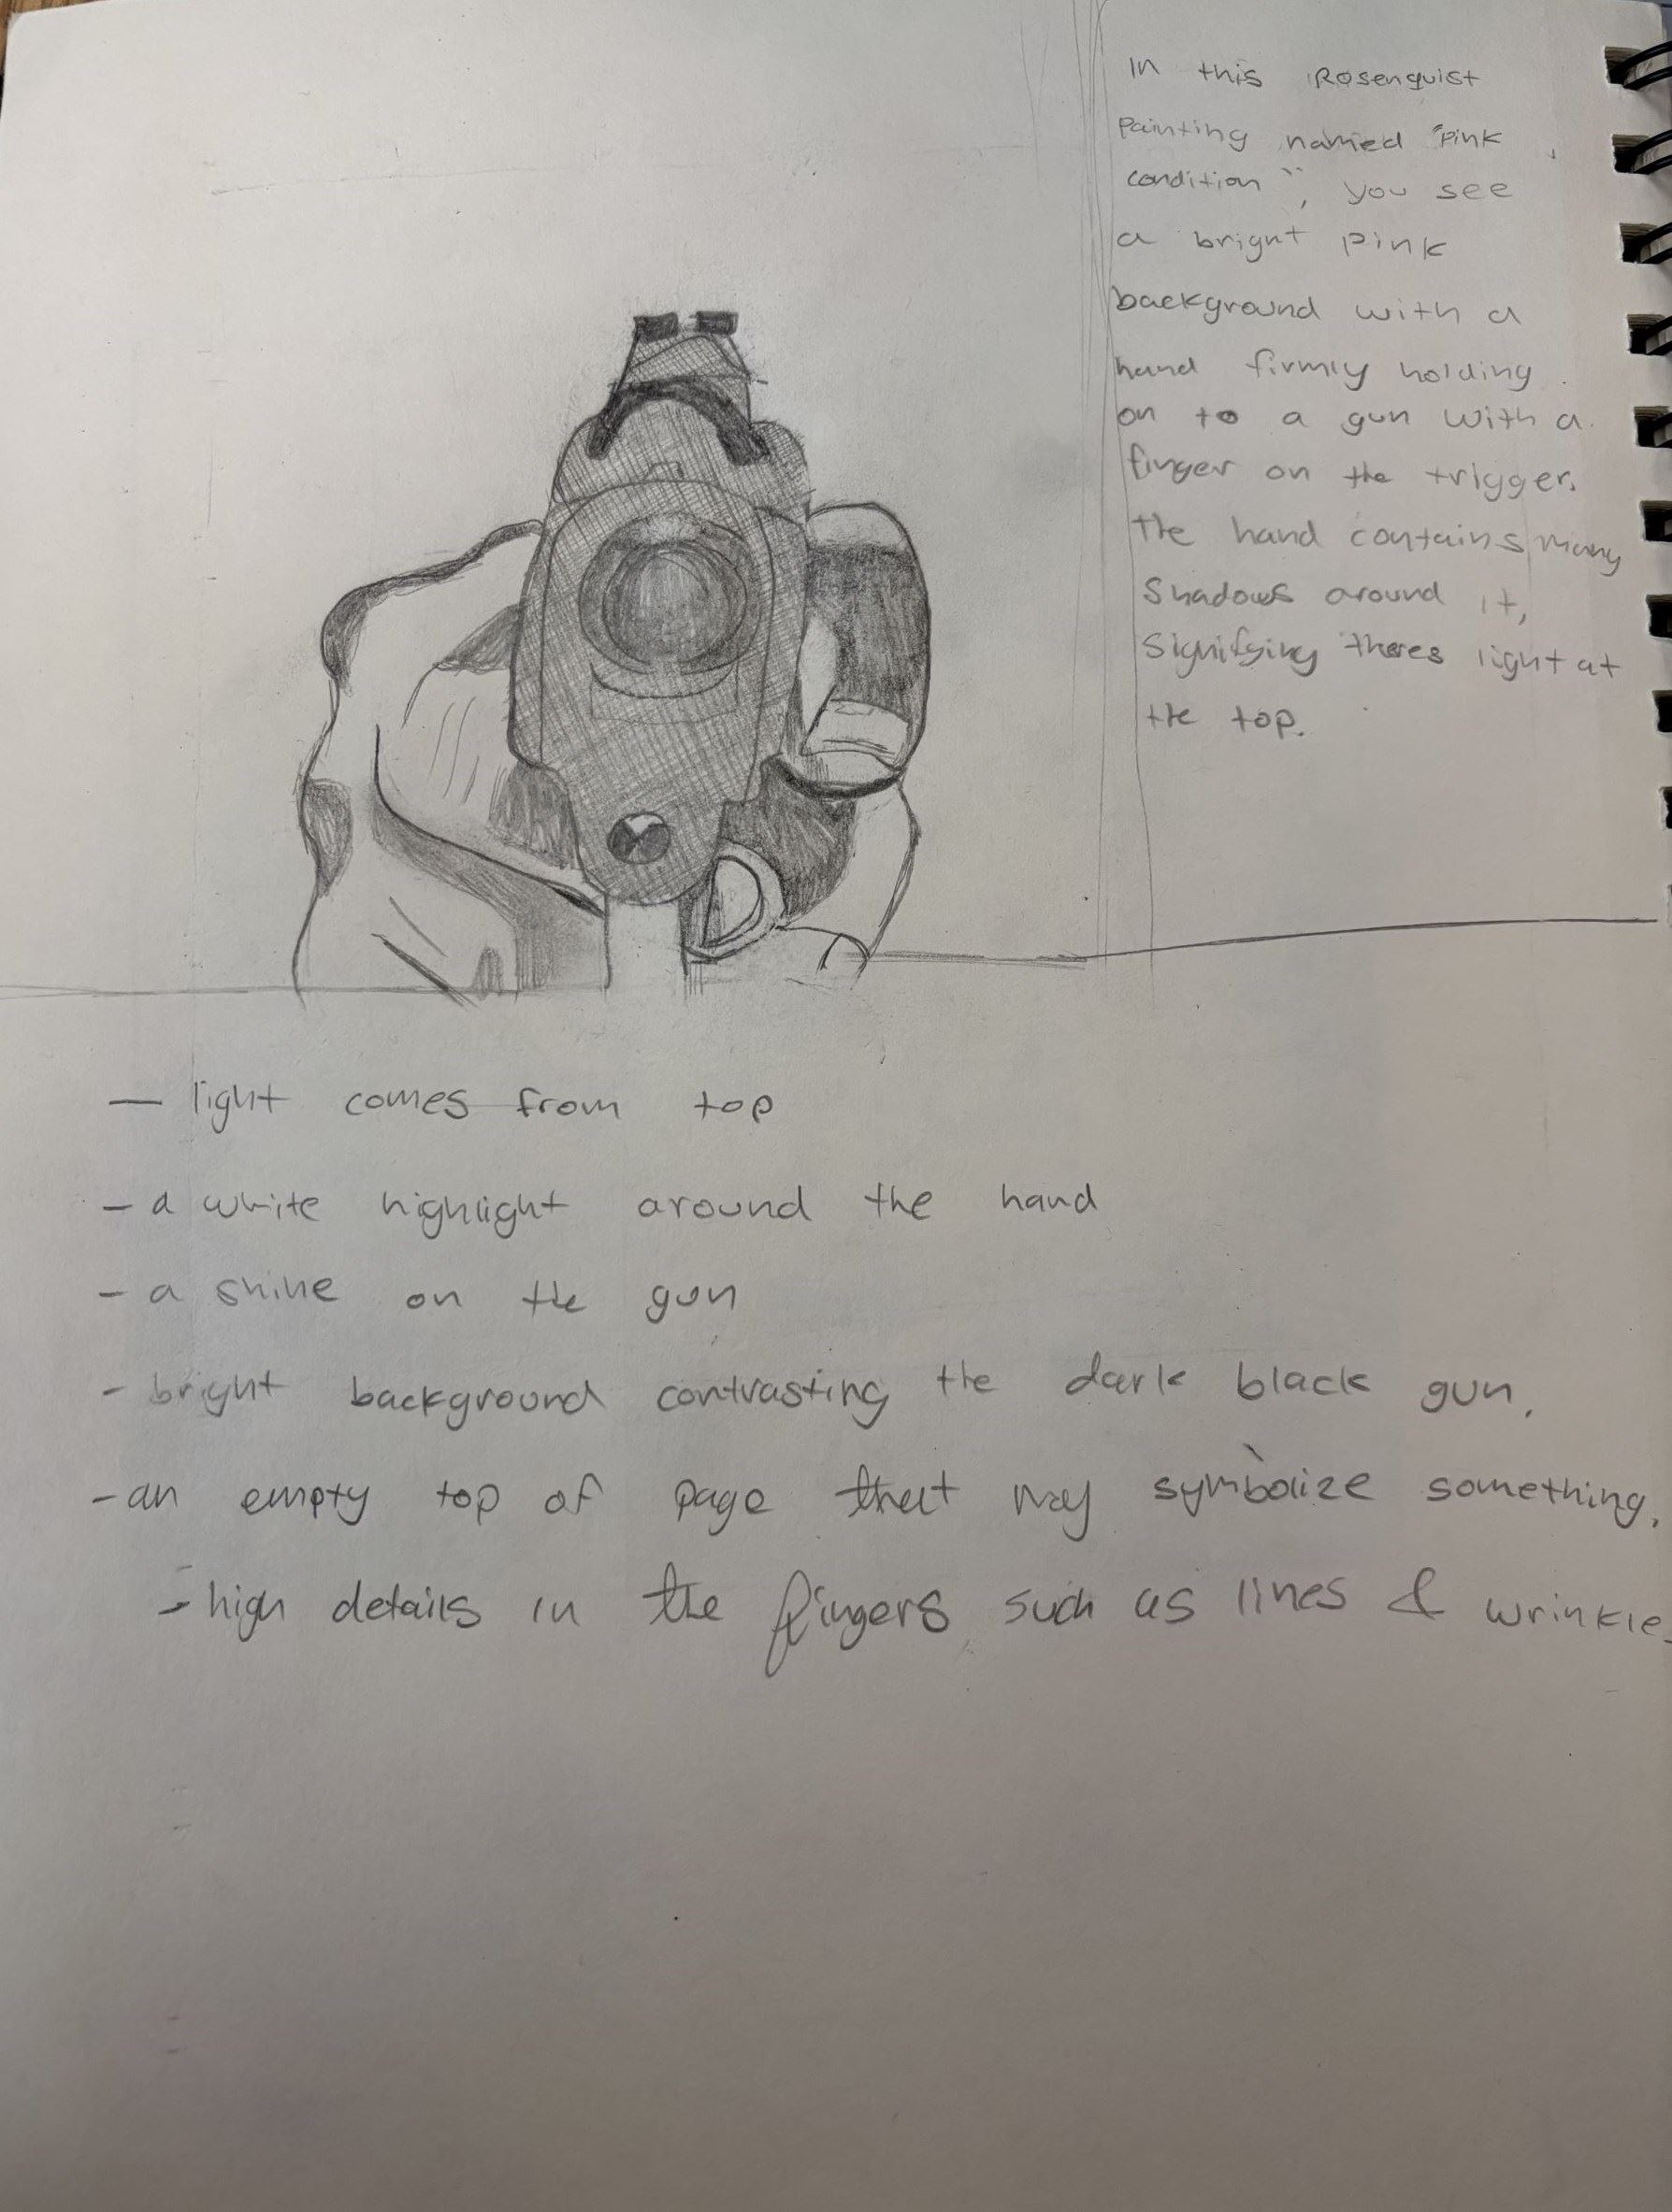 In this Rosenquist
Painting named "Pink
condition", you see
a bright pink
background with a
hand firmly holding
on to a gun with a
finger on the trigger.
the hand contains many
Shadows around it,
Signifying theres light at
the top.
— light comes from top
- a white highlight around the hand
- a shine on the gun
- bright background contrasting the dark black gun.
- an empty top of page that may symbolize something.
- high details in the fingers such as lines & wrinkle